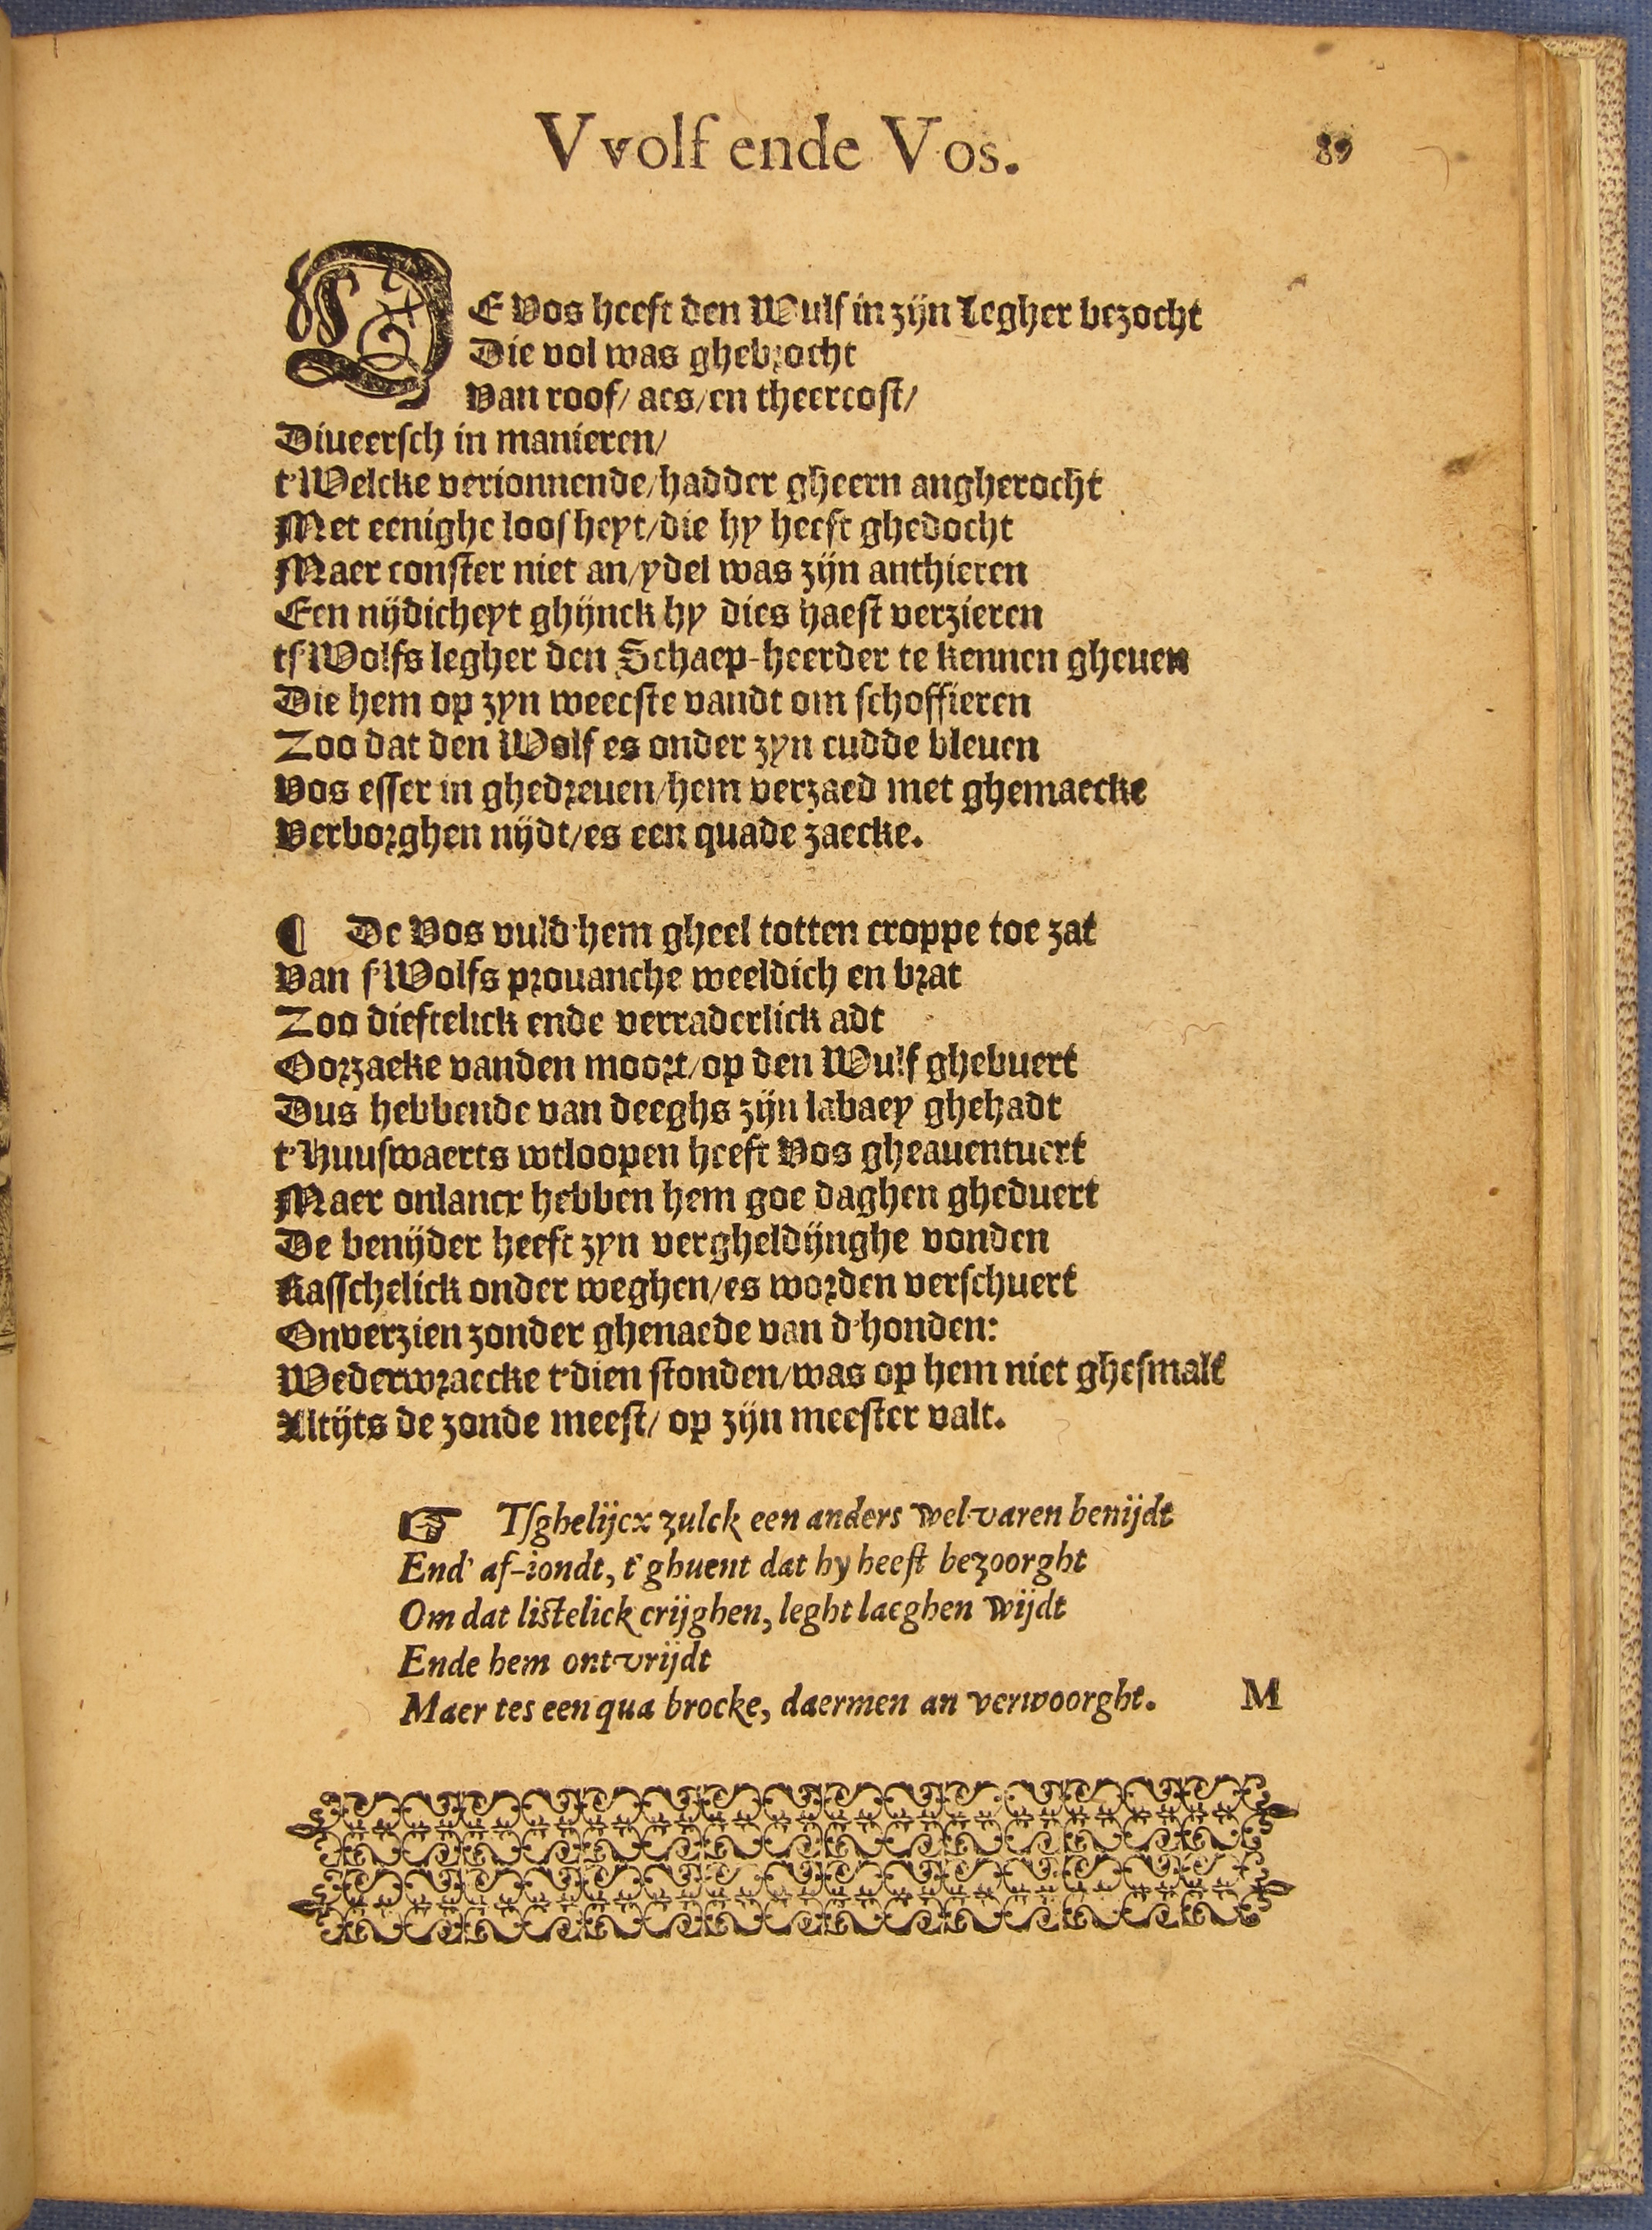 Vvolf ende Vos. 89
DE Vos heeft den Wulf in zijn Legher bezocht
Die vol was ghebrocht
Van roof/ aes/ en theercost/
Diueersch in manieren/
t'Welcke verionnende/ hadder gheern angherocht
Met eenighe loosheyt/ die hy heeft ghedocht
Maer conster niet an/ ydel was zijn anthieren
Een nijdicheyt ghijnck hy dies haest verzieren
tſ'Wolfs legher den Schaep-heerder te kennen gheuen
Die hem op zyn weecste vandt om schoffieren
Zoo dat den Wolf es onder zyn cudde bleuen
Vos esser in ghedreuen/ hem verzaed met ghemaecke
Verborghen nijdt/ es een quade zaecke.
¶ De Vos vuld'hem gheel totten croppe toe zat
Van ſ'Wolfs prouanche weeldich en brat
Zoo dieftelick ende verraderlick adt
Oorzaeke vanden moort/ op den Wulf ghebuert
Dus hebbende van deeghs zijn labaey ghehadt
t'Huuſwaerts wtloopen heeft Vos gheauentuert
Maer onlancx hebben hem goe daghen gheduert
De benijder heeft zyn vergheldijnghe vonden
Rasschelick onder weghen/ es worden verschuert
Onverzien zonder ghenaede van d'honden:
Wederwraecke t'dien stonden/ was op hem niet ghesmalt
Altijts de zonde meest/ op zijn meester valt.
☞ Tſghelijcx zulck een anders wel-varen benijdt
End' af-iondt, t'ghuent dat hy heeft bezoorght
Om dat listelick crijghen, leght laeghen wijdt
Ende hem ontvrijdt
Maer tes een qua brocke, daermen an verwoorght. M